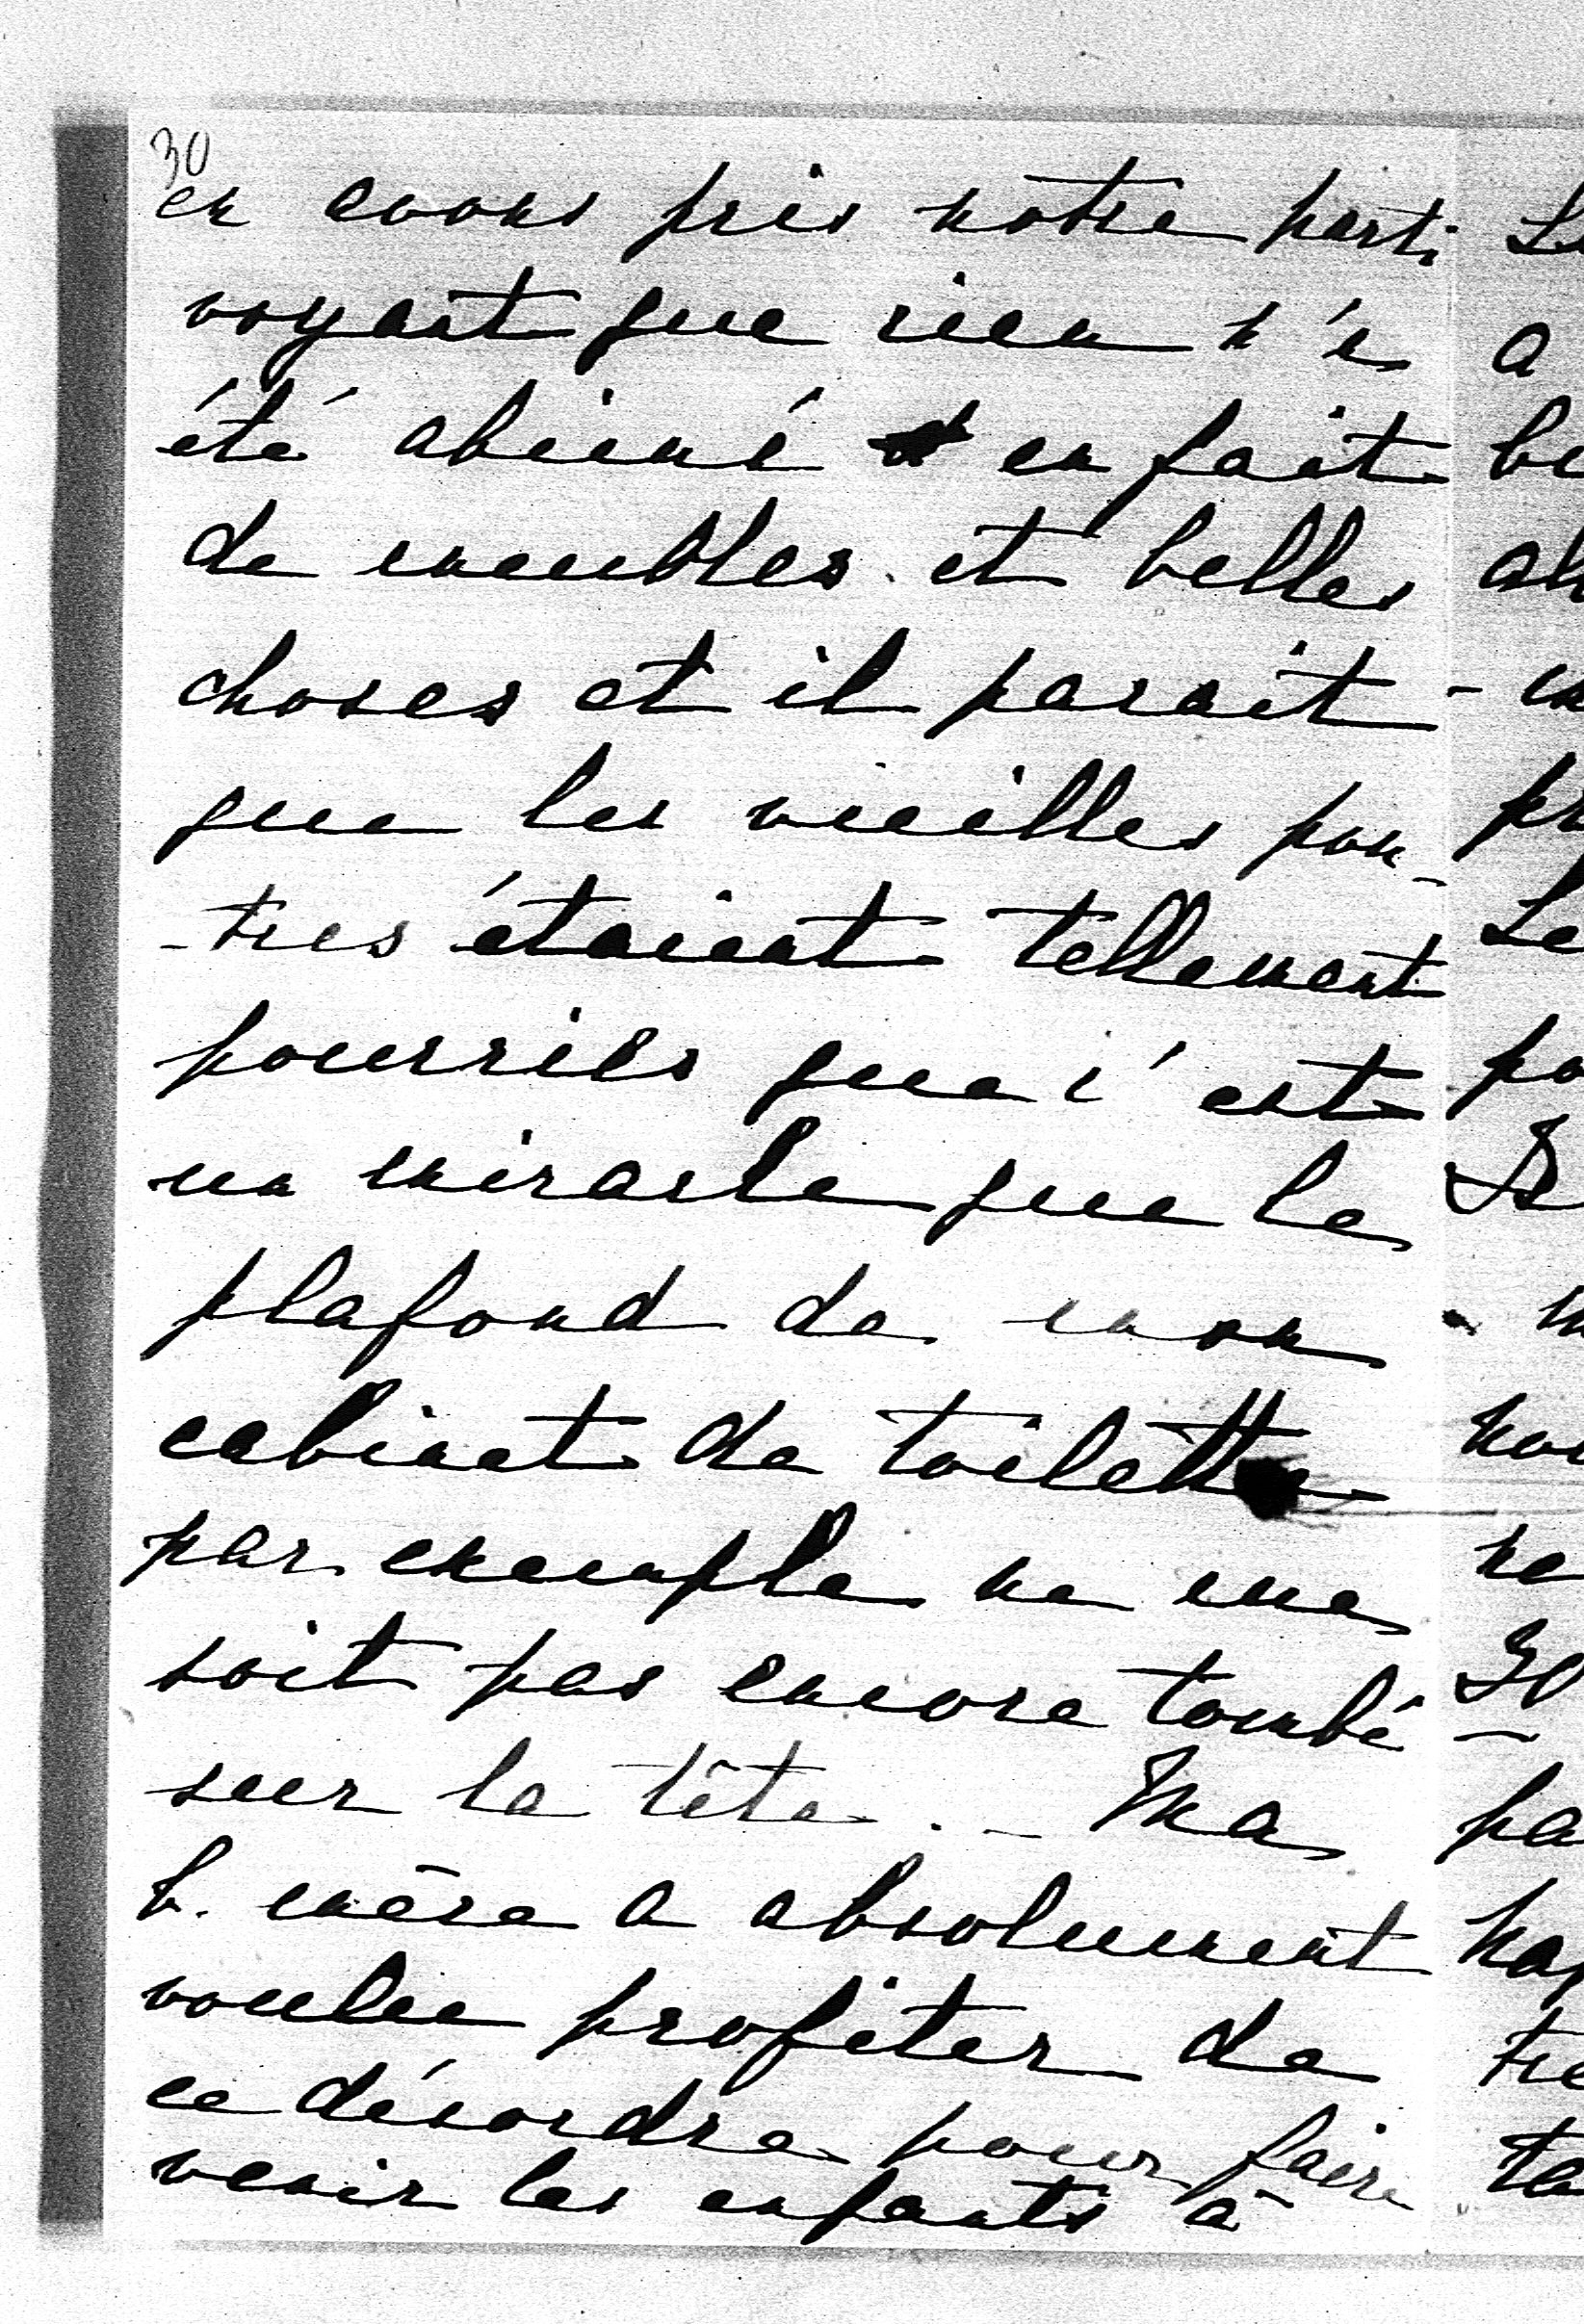 30
en avons pris notre parti
voyant que rien n'a
été abimé en fait
de meubles et belles
choses et il parait
que les vieilles pou-
-tres étaient tellement
pourries que c'est
un miracle que le
plafond de mon
cabinet de toilette
par exemple ne me
soit pas encore tombé
sur la tête. - Ma
b. mère a absolument
voulu profiter de
ce désordre pour faire
venir les enfants à